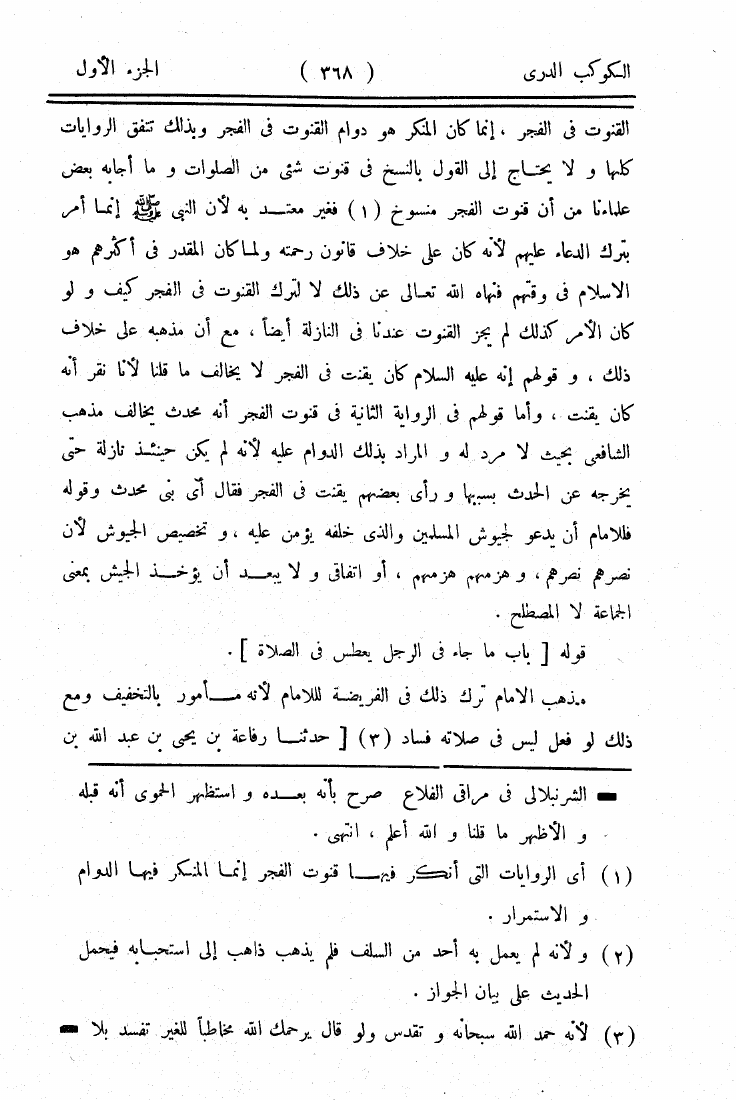 الكوكب الدرى ( ٣٦٨ ) الجزء الأول
القنوت فى الفجر ، إنما كان المنكر هو دوام القنوت فى الفجر وبذلك تتفق الروايات
كلها و لا يحتاج إلى القول بالنسخ فى قنوت شئى من الصلوات و ما أجابه بعض
علماءنا من أن قنوت الفجر منسوخ (١) فغير معتد به لأن النبى ﷺ إنما أمر
بترك الدعاء عليهم لأنه كان على خلاف قانون رحمته ولما كان المقدر فى أكثرهم هو
الاسلام فى وقتهم فنهاه الله تعالى عن ذلك لا لترك القنوت فى الفجر كيف و لو
كان الأمر كذلك لم يجز القنوت عندنا فى النازلة أيضاً ، مع أن مذهبه على خلاف
ذلك ، و قولهم إنه عليه السلام كان يقنت فى الفجر لا يخالف ما قلنا لأنا نقر أنه
كان يقنت ، وأما قولهم فى الرواية الثانية فى قنوت الفجر أنه محدث يخالف مذهب
الشافعى بحيث لا مرد له و المراد بذلك الدوام عليه لأنه لم يكن حينئذ نازلة حتى
يخرجه عن الحدث بسببها و رأى بعضهم يقنت فى الفجر فقال أى بنى محدث وقوله
فللامام أن يدعو لجيوش المسلمين والذى خلفه يؤمن عليه ، و تخصيص الجيوش لأن
نصرهم نصرهم ، و هزمهم هزمهم ، أو اتفاقى و لا يبعد أن يؤخذ الجيش بمعنى
الجماعة لا المصطلح .
قوله [ باب ما جاء فى الرجل يعطس فى الصلاة ] .
مذهب الامام ترك ذلك فى الفريضة للامام لأنه مأمور بالتخفيف ومع
ذلك لو فعل ليس فى صلاته فساد (٣) [ حدثنا رفاعة بن يحيى بن عبد الله بن
الشرنبلالى فى مراقى الفلاع صرح بأنه بعده و استظهر الحموى أنه قبله
و الأظهر ما قلنا و الله أعلم ، انتهى .
(١) أى الروايات التى أنكر فيها قنوت الفجر إنما المنكر فيها الدوام
و الاستمرار .
(٢) و لأنه لم يعمل به أحد من السلف فلم يذهب ذاهب إلى استحبابه فيحمل
الحديث على بيان الجواز .
(٣) لأنه حمد الله سبحانه و تقدس ولو قال يرحمك الله مخاطباً للغير تفسد بلا